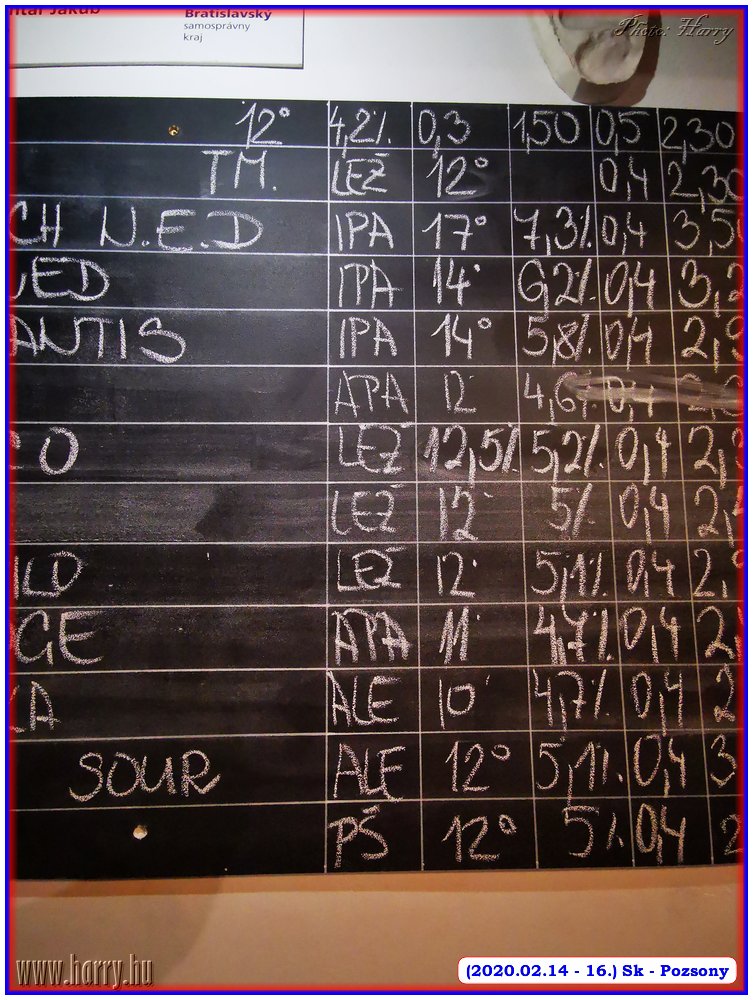 Bratislavský
samosprávny
kraj
Photo: Harry
12° 4,2% 0,3 1,50 0,5 2,30
TM. LEŽ 12° 0,4 2,30
CH N.E.D IPA 17° 7,3% 0,4 3,5
ED IPA 14° 6,2% 0,4 3,
ANTIS IPA 14° 5,8% 0,4 2,
APA 12 4,6% 0,4
O LEŽ 12,5% 5,2% 0,4 2,
LEŽ 12° 5% 0,4 2,
LD LEŽ 12° 5,1% 0,4 2,
GE APA 11° 4,7% 0,4 2,
KA ALE 10° 4,7% 0,4 2
SOUR ALE 12° 5,1% 0,4 3
PŠ 12° 5% 0,4 2
www.harry.hu
(2020.02.14 - 16.) Sk - Pozsony